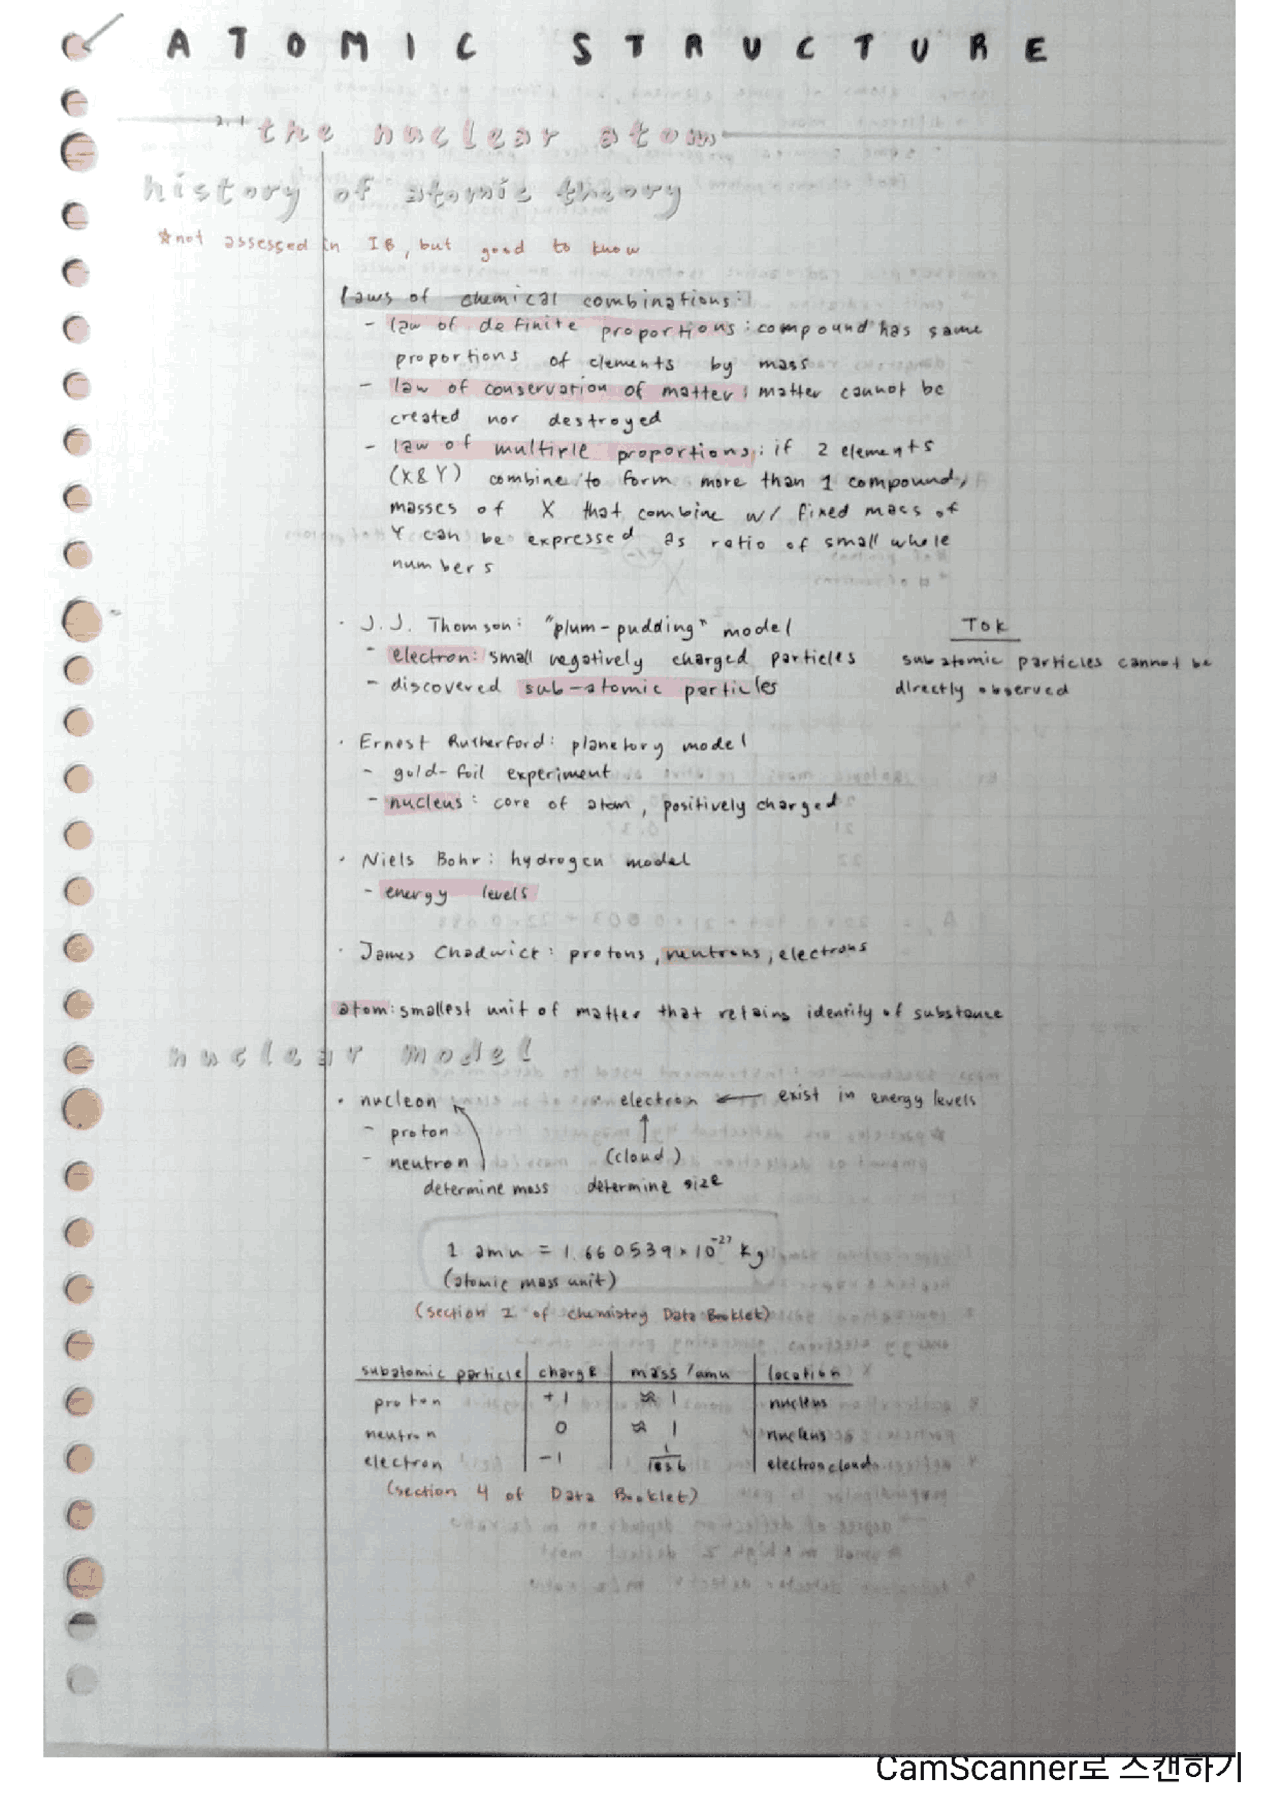 ATOMIC STRUCTURE
2.1 the nuclear atom
history of atomic theory
*not assessed in IB, but good to know
laws of chemical combinations:
- law of definite proportions: compound has same
proportions of elements by mass
- law of conservation of matter: matter cannot be
created nor destroyed
- law of multiple proportions: if 2 elements
(X&Y) combine to form more than 1 compound,
masses of X that combine w/ fixed mass of
Y can be expressed as ratio of small whole
numbers
· J.J. Thomson: "plum-pudding" model
- electron: small negatively charged particles
- discovered sub-atomic particles
Tok
subatomic particles cannot be
directly observed
· Ernest Rutherford: planetary model
- gold-foil experiment
- nucleus: core of atom, positively charged
· Niels Bohr: hydrogen model
- energy levels
· James Chadwick: protons, neutrons, electrons
atom: smallest unit of matter that retains identity of substance
nuclear model
· nucleon · electron ← exist in energy levels
- proton ↑
- neutron (cloud)
determine mass determine size
1 amu = 1.660539 × 10⁻²⁷ kg
(atomic mass unit)
(section 2 of chemistry Data Booklet)
subatomic particle charge mass /amu location
proton +1 ≈ 1 nucleus
neutron 0 ≈ 1 nucleus
electron -1 1/1836 electron cloud
(section 4 of Data Booklet)
CamScanner로 스캔하기